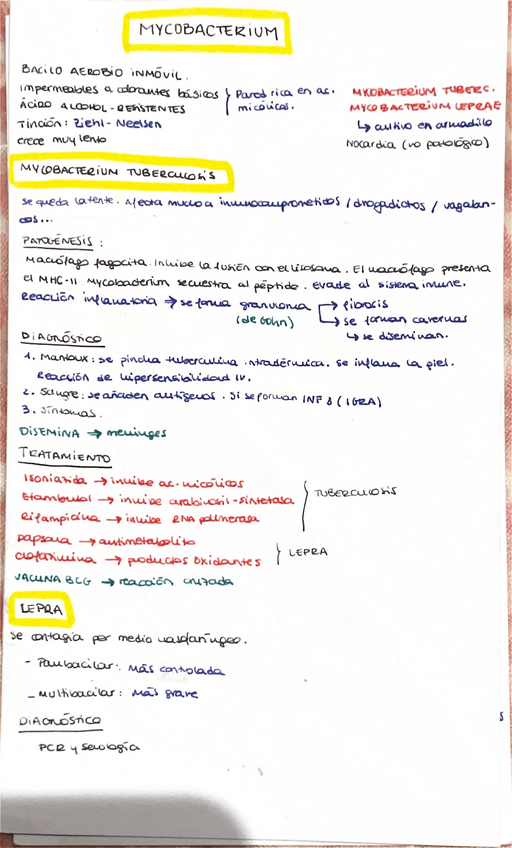 MYCOBACTERIUM
BACILO AEROBIO INMÓVIL.
Impermeables a colorantes básicos } Pared rica en ac. micólicos.
ÁCIDO ALCOHOL-RESISTENTES
Tinción: Ziehl-Neelsen
crece muy lento
MYCOBACTERIUM TUBERC.
MYCOBACTERIUM LEPRAE
↳ cultivo en armadillo
Nocardia (no patológico)
MYCOBACTERIUM TUBERCULOSIS
Se queda latente. Afecta mucho a inmunocomprometidos / drogadictos / vagabun-
dos...
PATOGÉNESIS:
Macrófago fagocita. Inhibe la fusión con el lisosoma. El macrófago presenta
el MHC-II. Mycobacterium secuestra al péptido. Evade al sistema inmune.
Reacción inflamatoria → se forma granuloma → fibrosis
(de Gohn) ↳ se forman cavernas
↳ se diseminan.
DIAGNÓSTICO
1. Mantoux: se pincha tuberculina intradérmica. Se inflama la piel.
Reacción de hipersensibilidad IV.
2. Sangre: se añaden antígenos. Si se forman INF γ (IGRA)
3. Síntomas.
DISEMINA → meninges
TRATAMIENTO
Isoniazida → inhibe ac. micólicos
Etambutol → inhibe arabinosil-sintetasa } TUBERCULOSIS
Rifampicina → inhibe RNA polimerasa
Dapsona → antimetabolito
Clofazimina → productos oxidantes } LEPRA
VACUNA BCG → reacción cruzada
LEPRA
Se contagia por medio nasofaríngeo.
- Paubacilar: Más controlada
- Multibacilar: Más grave
DIAGNÓSTICO
PCR y serología